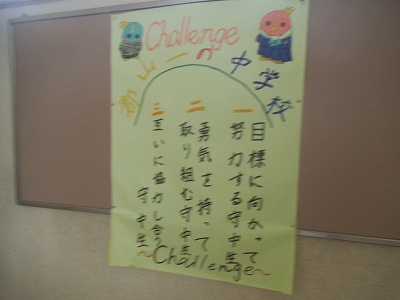 Challenge
郡山一の中学校
一 目標に向かって
努力する守中生
二 勇気を持って
取り組む守中生
三 互いに協力し合う
守中生
~Challenge~